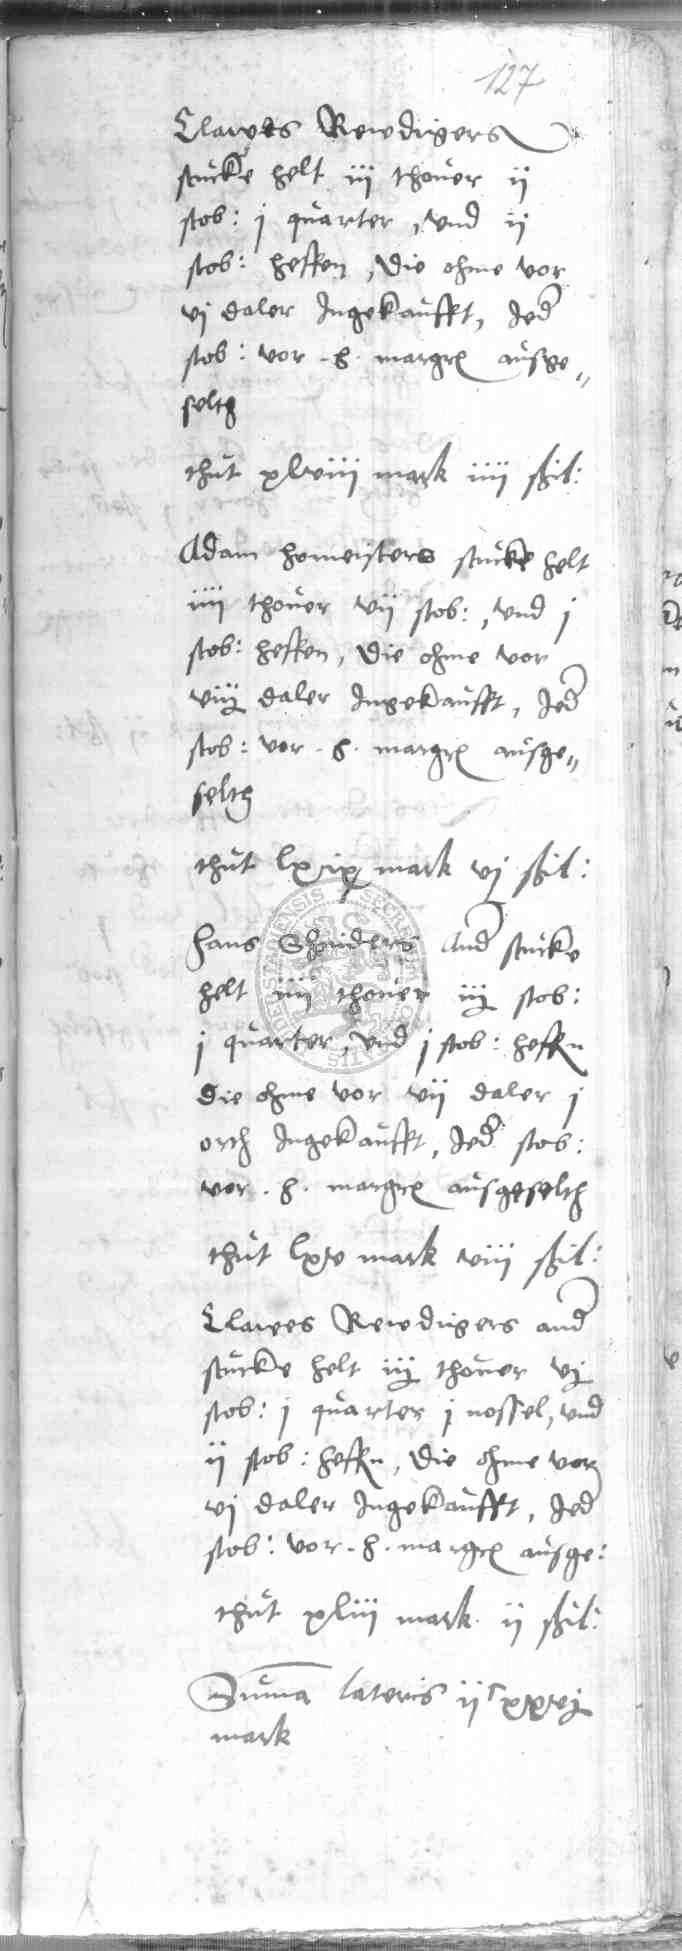 127
Clawes Rewdigers
stucke helt iij thover ij
stob: j quarter, vnd ij
stob: heffen, die ohme vor
vj daler Ingekaufft, Jed
stob: vor .g. margr ausge„
selth
thut xlviii mark iiii skil:
Adam homeisters stucke helt
iiii thover vii stob:, vnd j
stob: heffen, die ohme vor
viij daler Ingekaufft, Jed
stob: vor .g. margr ausge„
selth
thut lxix mark vj skil:
Hans Schniders And stucke
helt iiii thover iij stob:
j quarter, vnd j stob: heffn
die ohme vor vii daler j
orth Ingekaufft, Jed stob:
vor .g. margr ausgeselth
thut lxv mark viii skil:
Clawes Rewdigers and
stucke helt iij thover vj
stob: j quarter j nossel, vnd
ij stob: heffn, die ohme vor
vj daler Ingekaufft, Jed
stob: vor .g. margr ausge:
thut xliii mark ij skil:
Suma lateris ij c xxvj
mark